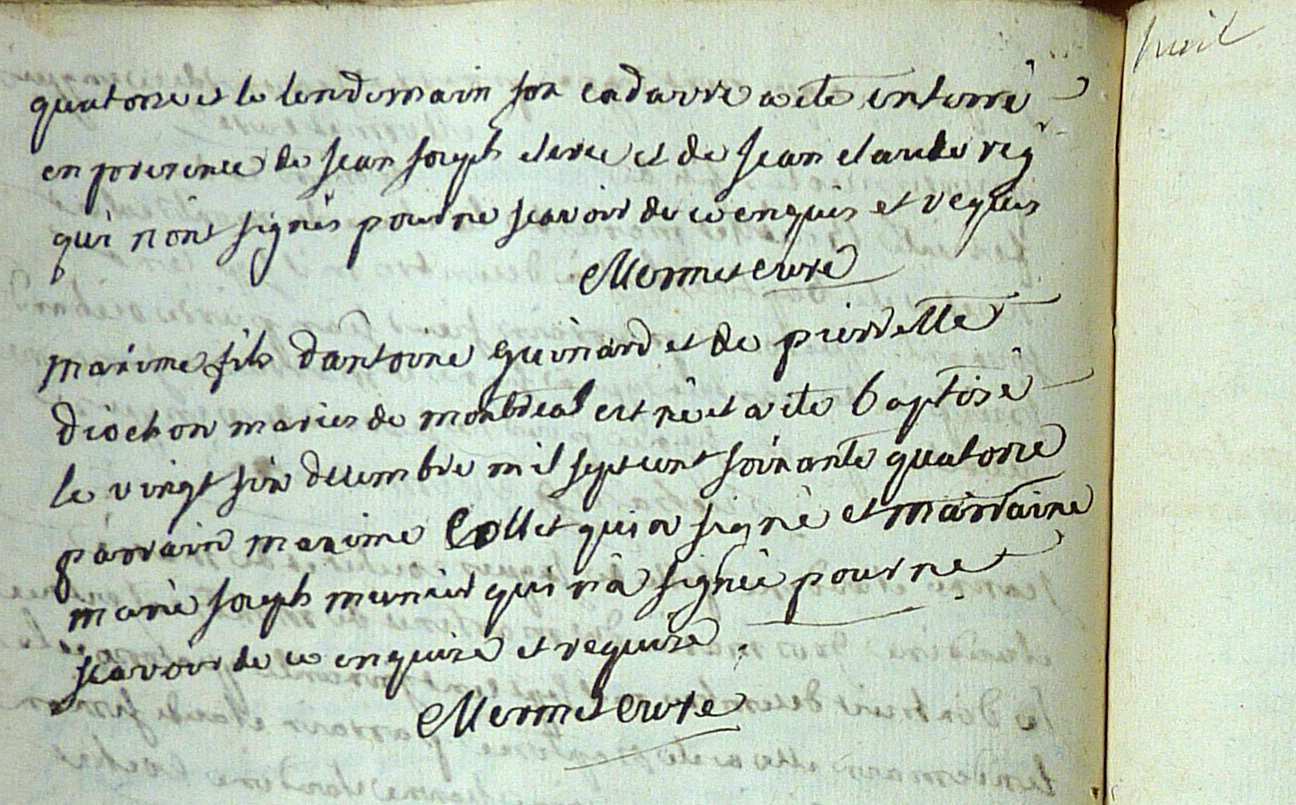 quatorse et le lendemain son cadavre a ete enterré
en presence de jean joseph clerc et de jean claude rey
qui n'ont signés pour ne scavoir de ce enquis et requis
Mermet curé
maxime fils d'antoine guinard et de pierrette
diochon mariés de montreal est né et a ete baptisé
le vingt six decembre mil sept cent soixante quatorse
parrain maxime Collet qui a signé et marraine
marie joseph munier qui n'a signée pour ne
scavoir de ce enquise et requise
Mermet curé